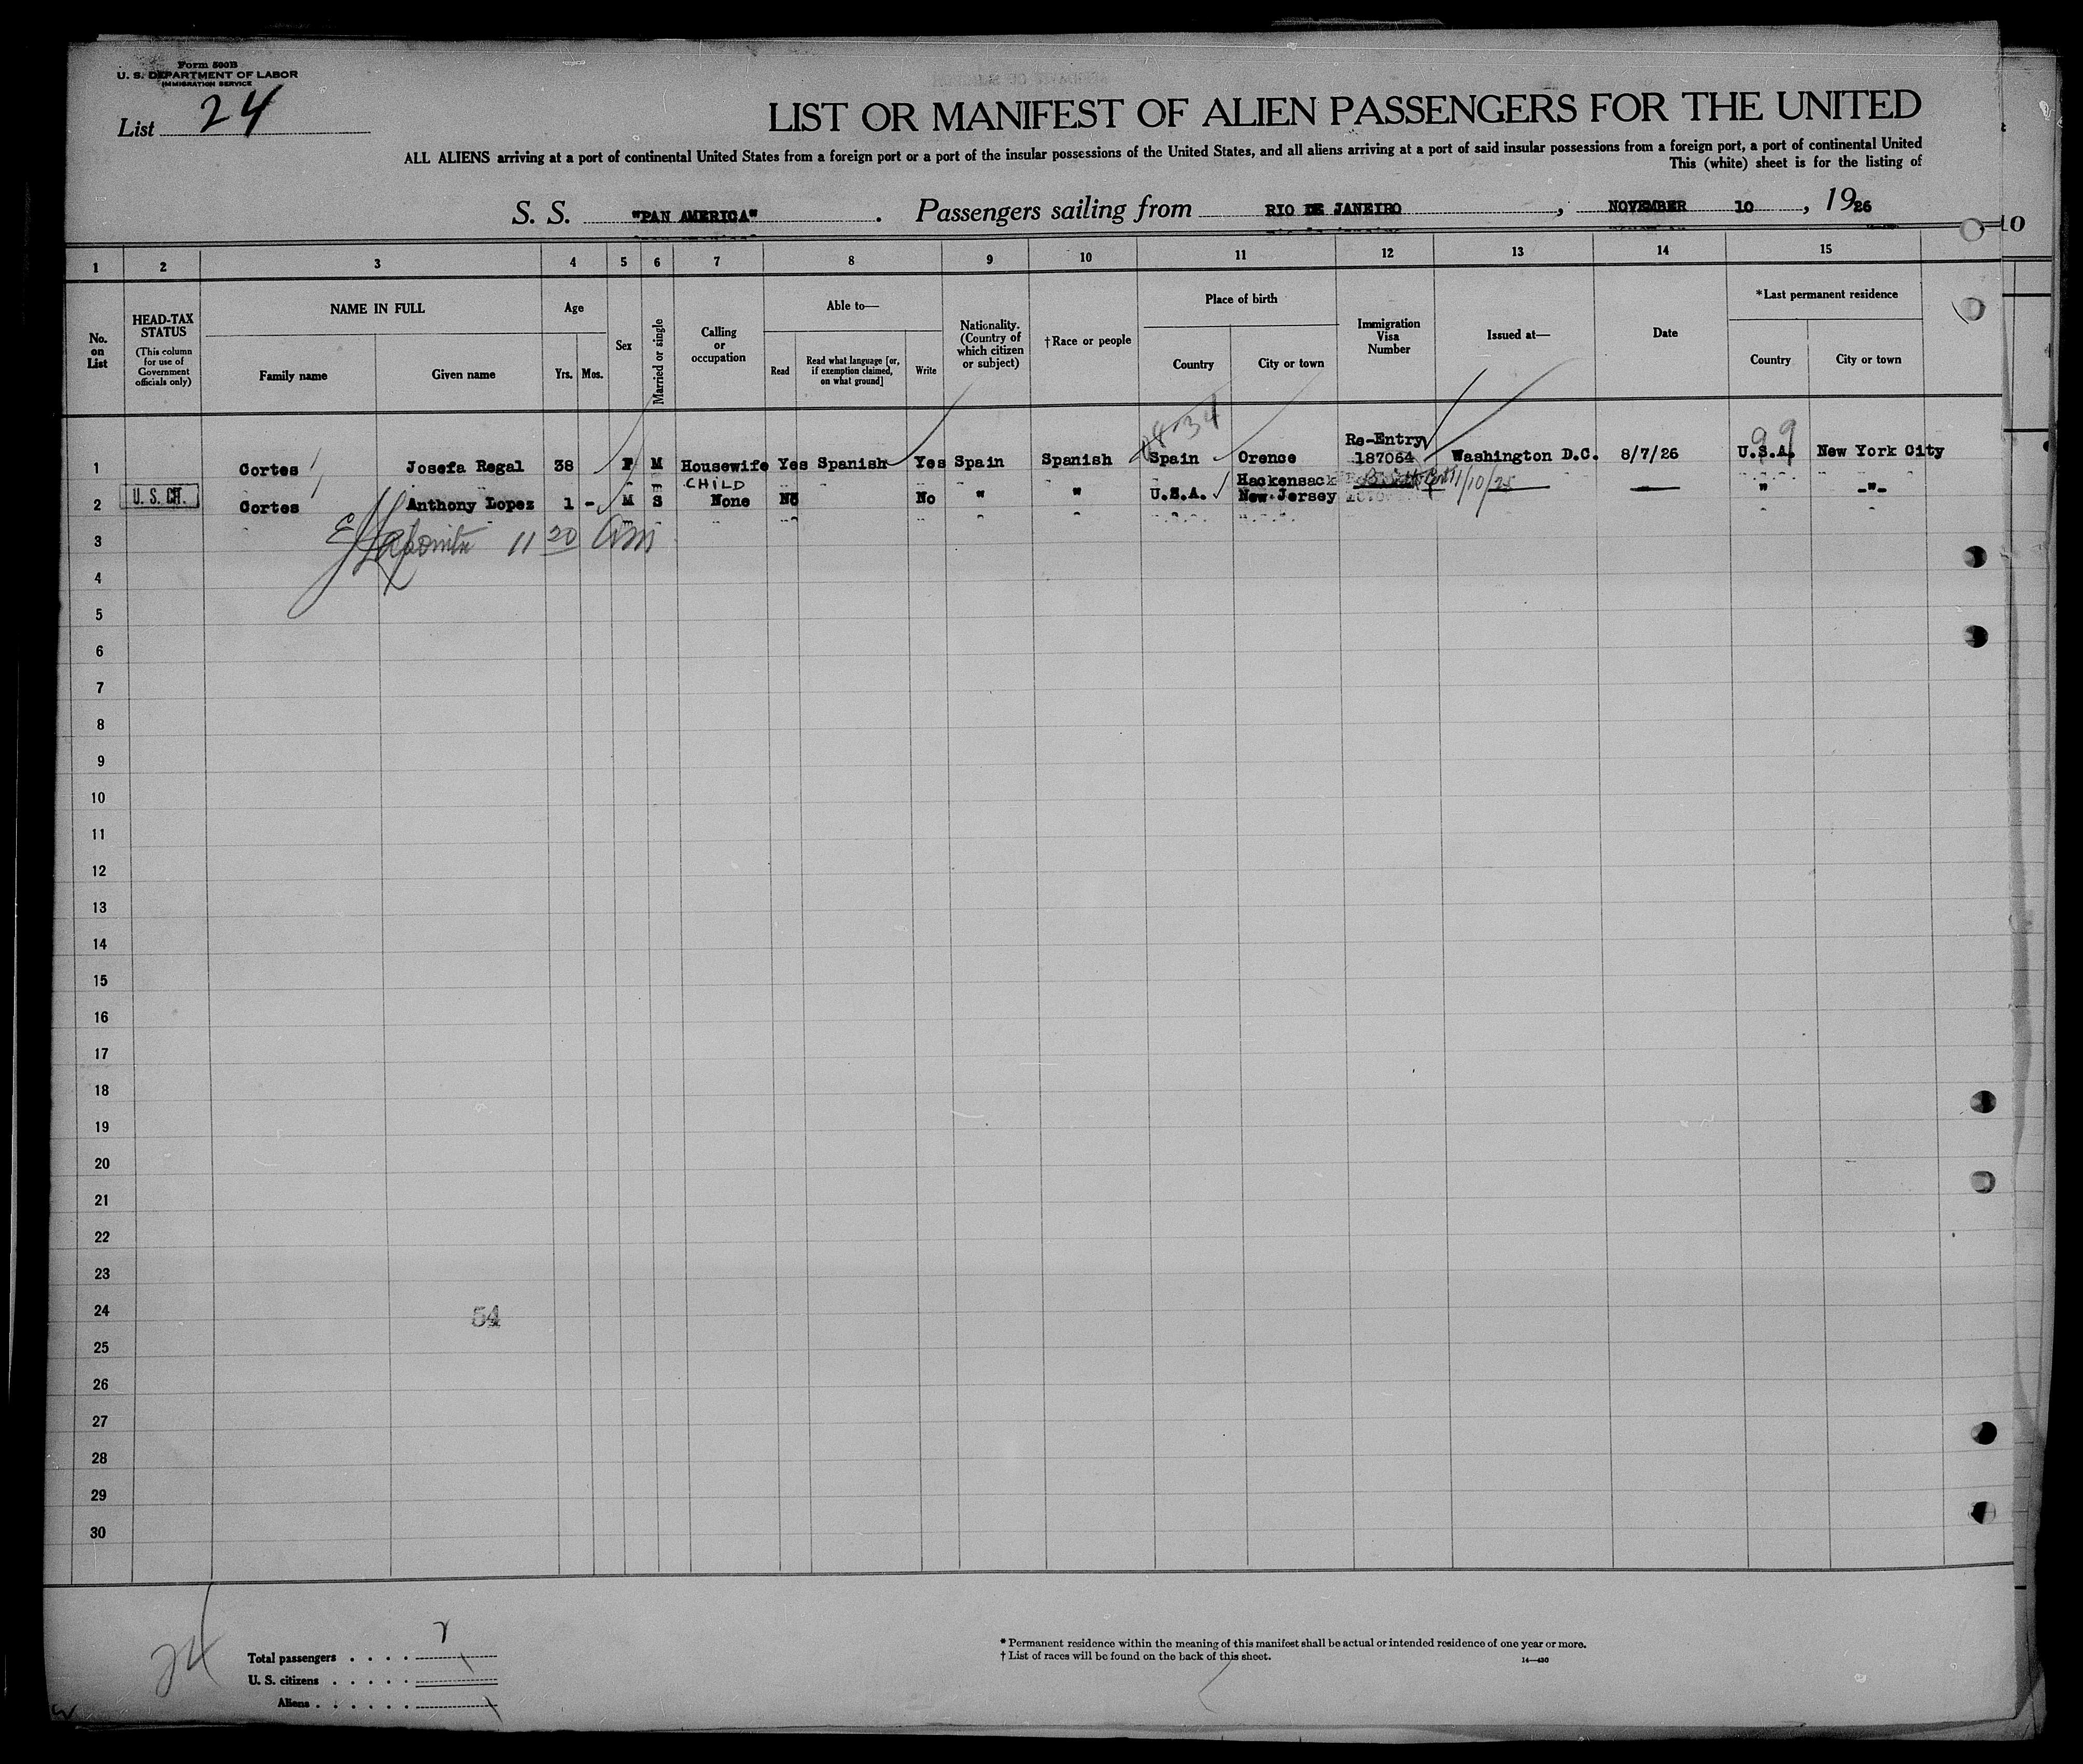 Form 500B
U. S. DEPARTMENT OF LABOR
IMMIGRATION SERVICE
List 24
LIST OR MANIFEST OF ALIEN PASSENGERS FOR THE UNITED
ALL ALIENS arriving at a port of continental United States from a foreign port or a port of the insular possessions of the United States, and all aliens arriving at a port of said insular possessions from a foreign port, a port of continental United
This (white) sheet is for the listing of
S. S. "PAN AMERICA". Passengers sailing from RIO DE JANEIRO, NOVEMBER 10, 1926
10
1 2 3 4 5 6 7 8 9 10 11 12 13 14 15
No. on List
HEAD-TAX STATUS
(This column for use of Government officials only)
NAME IN FULL
Family name
Given name
Age
Yrs. Mos.
Sex
Married or single
Calling or occupation
Able to—
Read
Read what language [or, if exemption claimed, on what ground]
Write
Nationality. (Country of which citizen or subject)
†Race or people
Place of birth
Country
City or town
Immigration Visa Number
Issued at—
Date
*Last permanent residence
Country
City or town
1 Cortes Josefa Regal 38 F M Housewife Yes Spanish Yes Spain Spanish Spain Orence Re-Entry 187064 Washington D.C. 8/7/26 U.S.A. New York City
99
2 U. S. CIT. Cortes Anthony Lopez 1 - M S CHILD None No No " " U.S.A. Hackensack New Jersey 11/10/25 — " -"-
3 11 20 am
4
5
6
7
8
9
10
11
12
13
14
15
16
17
18
19
20
21
22
23
24
54
25
26
27
28
29
30
24
Total passengers . . . . 2
U. S. citizens . . . . .
Aliens . . . . . .
* Permanent residence within the meaning of this manifest shall be actual or intended residence of one year or more.
† List of races will be found on the back of this sheet.
14—430